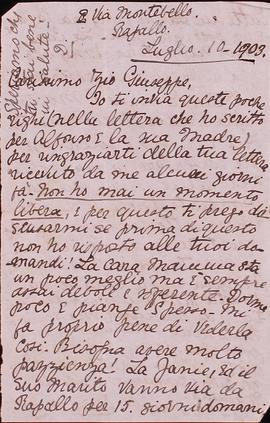 2 Via Montebello
Rapallo.
Luglio. 10 - 1909.
Carissimo Zio Giuseppe,
Io ti invia queste poche
righi (nella lettera che ho scritto
per Alfonso e la sua Madre)
per ringraziarti della tua lettera
ricevuto da me alcuni giorni
fà. Non ho mai un momento
libera, e per questo ti prego di
scusarmi se prima di questo
non ho risposto alle tuoi do-
mandi! La Cara Mamma sta
un poco meglio ma è sempre
assai debole e sofferente. Dorme
poco e piange spesso. Mi
fa proprio pene di vederla
Così. Bisogna avere molto
pazzienza! La Janie, ed il
suo Marito vanno via da
Rapallo per 15. giorni domani,